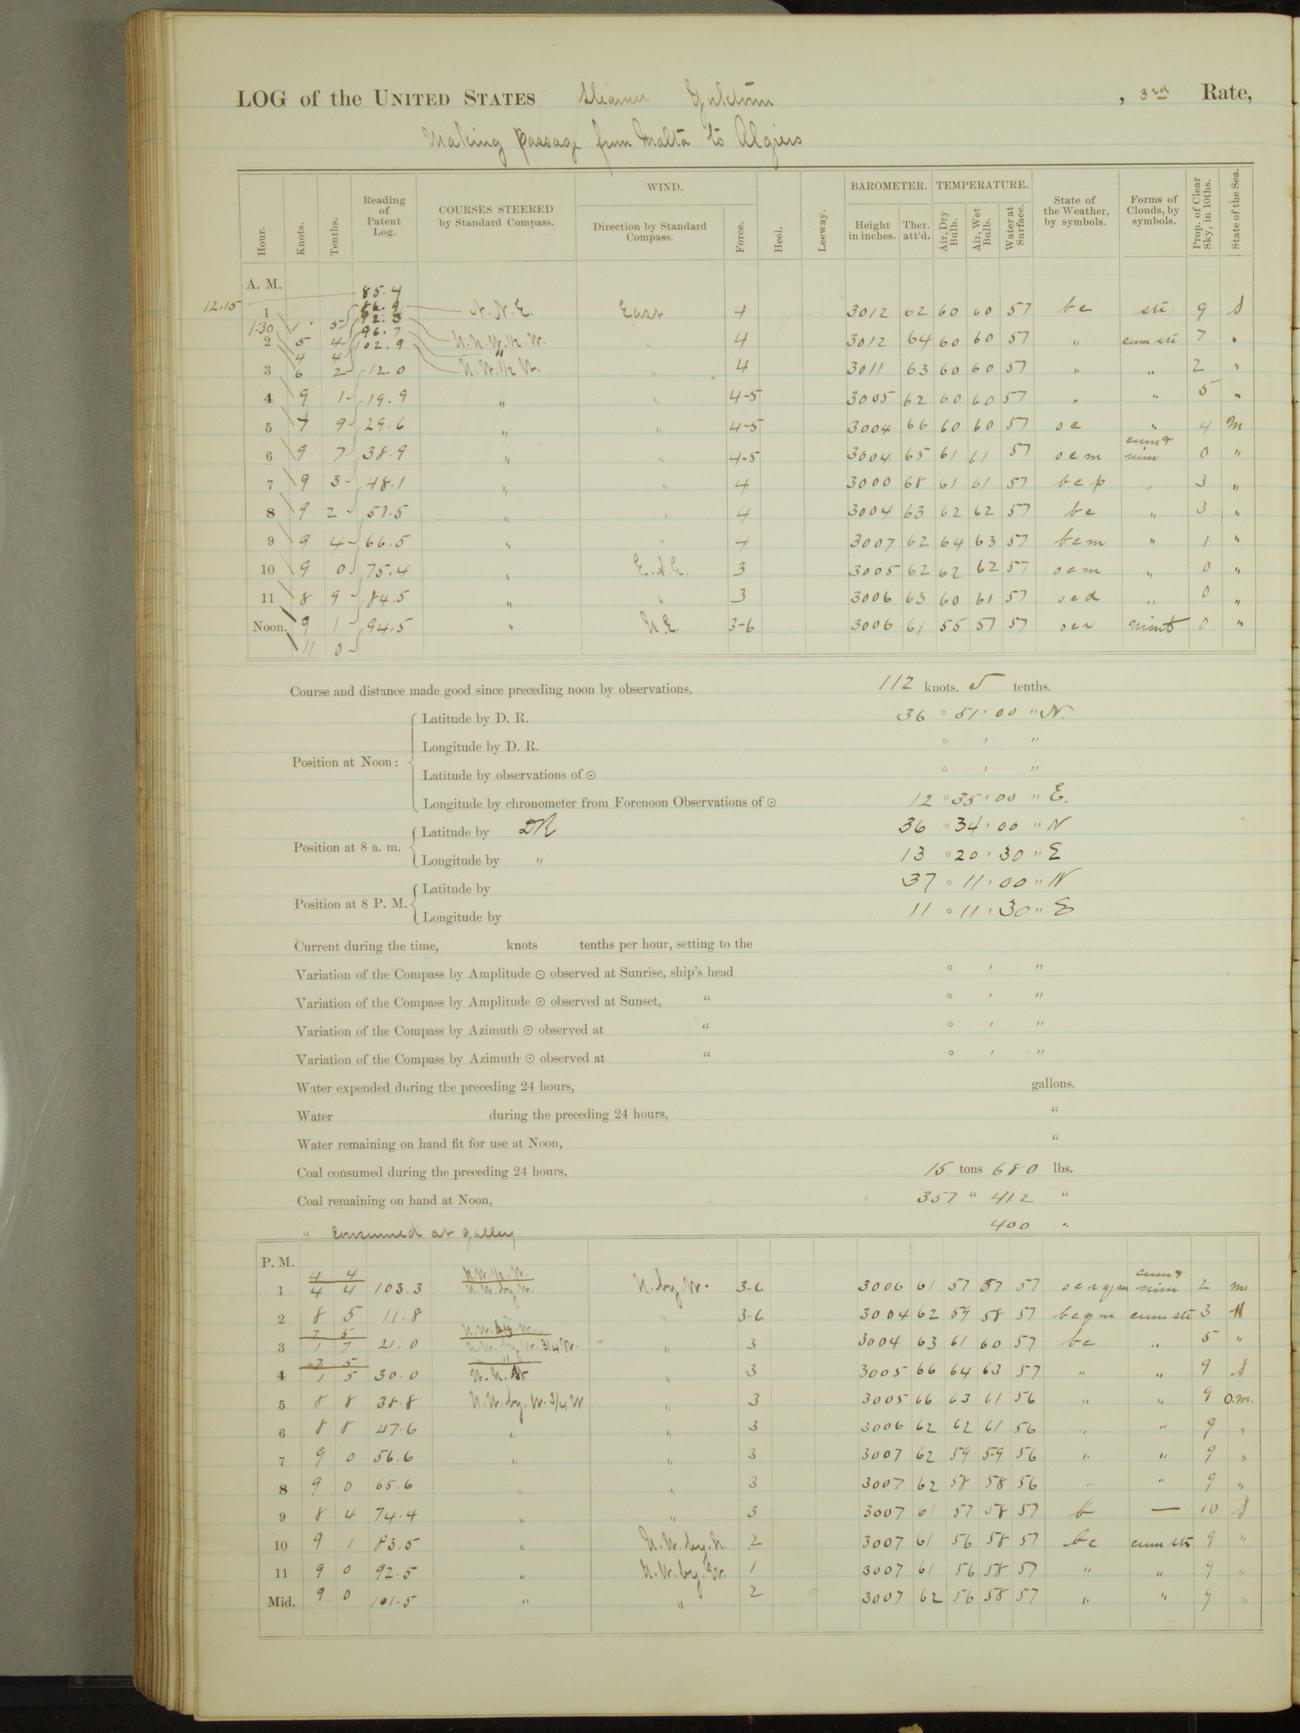 LOG of the UNITED STATES Steamer Yorktown, 3rd Rate,
Making passage from Malta to Algiers
Hour. Knots. Tenths. Reading of Patent Log. COURSES STEERED by Standard Compass. WIND. Direction by Standard Compass. Force. Heel. Leeway. BAROMETER. Height in inches. Ther. att'd. TEMPERATURE. Air, Dry Bulb. Air, Wet Bulb. Water at Surface. State of the Weather, by symbols. Forms of Clouds, by symbols. Prop. of Clear Sky, in 10ths. State of the Sea.
A. M.
85.4
12.15 1 86.9 N.N.E. East 4 3012 62 60 60 57 bc str 9 S
1.30 1 5 92.3
96.7
2 5 4 102.9 N.N.W.1/2 W. 4 3012 64 60 60 57 " cum str 7 "
4 4
3 6 2 12.0 N.W.1/2 W. 4 3011 63 60 60 57 " " 2 "
4 9 1 19.9 " " 4-5 3005 62 60 60 57 " " 5 "
5 7 9 29.6 " " 4-5 3004 66 60 60 57 oc " 4 M
6 9 7 38.9 " " 4-5 3004 65 61 61 57 ocm cum & nim 0 "
7 9 3 48.1 " " 4 3000 68 61 61 57 bcp " 3 "
8 9 2 57.5 " " 4 3004 63 62 62 57 bc " 3 "
9 9 4 66.5 " " 4 3007 62 64 63 57 bcm " 1 "
10 9 0 75.4 " E.S.E. 3 3005 62 62 62 57 ocm " 0 "
11 8 9 84.5 " " 3 3006 63 60 61 57 ocd " 0 "
Noon. 9 1 94.5 " N.E. 3-6 3006 61 55 57 57 ocr nimb 0 "
11 0
Course and distance made good since preceding noon by observations, 112 knots. 5 tenths.
Position at Noon: Latitude by D. R. 36 ° 51 ' 00 " N.
Longitude by D. R. ° ' "
Latitude by observations of ☉ ° ' "
Longitude by chronometer from Forenoon Observations of ☉ 12 ° 35 ' 00 " E.
Position at 8 a. m. Latitude by DR 36 ° 34 ' 00 " N
Longitude by " 13 ° 20 ' 30 " E
Position at 8 P. M. Latitude by 37 ° 11 ' 00 " N
Longitude by 11 ° 11 ' 30 " E
Current during the time, knots tenths per hour, setting to the
Variation of the Compass by Amplitude ☉ observed at Sunrise, ship's head ° ' "
Variation of the Compass by Amplitude ☉ observed at Sunset, " ° ' "
Variation of the Compass by Azimuth ☉ observed at " ° ' "
Variation of the Compass by Azimuth ☉ observed at " ° ' "
Water expended during the preceding 24 hours, gallons.
Water during the preceding 24 hours, "
Water remaining on hand fit for use at Noon, "
Coal consumed during the preceding 24 hours, 15 tons 680 lbs.
Coal remaining on hand at Noon, 357 " 412 "
" consumed at galley 400 "
P. M.
4 4 N.W.1/2 W.
1 4 4 103.3 N.W.by.W. N.by.W. 3-6 3006 61 57 57 57 cum & nim 2 m
2 8 5 11.8 " 3-6 3004 62 59 58 57 bcqm cum str 3 M
7 5
3 1 7 21.0 " 3 3004 63 61 60 57 bc " 5 "
7 5
4 1 5 30.0 " 3 3005 66 64 63 57 " " 9 S
5 8 8 38.8 N.W.by.W.3/4 W " 3 3005 66 63 61 56 " " 9 o.m.
6 8 8 47.6 " " 3 3006 62 62 61 56 " " 9 "
7 9 0 56.6 " " 3 3007 62 59 59 56 " " 9 "
8 9 0 65.6 " " 3 3007 62 58 58 56 " " 9 "
9 8 4 74.4 " " 3 3007 61 57 58 57 b — 10 S
10 9 1 83.5 " N.W.by.N. 2 3007 61 56 58 57 bc cum str 9 "
11 9 0 92.5 " N.W.by.W. 1 3007 61 56 58 57 " " 9 "
Mid. 9 0 101.5 " " 2 3007 62 56 58 57 " " 9 "